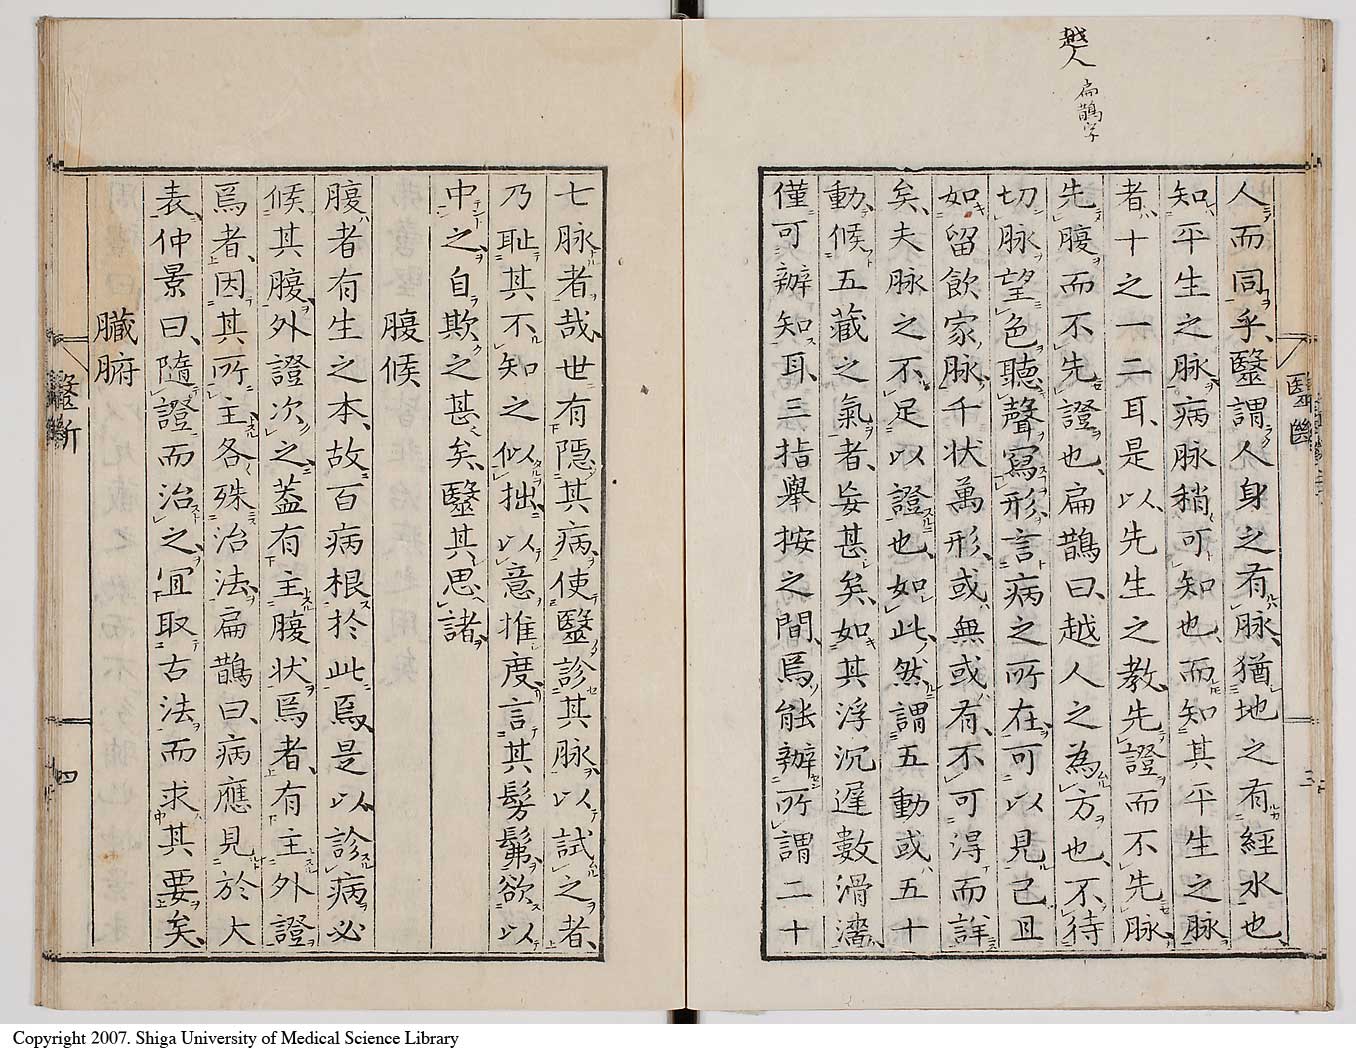 越人
扁鵲字
人而同乎、毉謂人身之有脉、猶地之有經水也、
知平生之脉病脉稍可知也、而知其平生之脉
者十之一二耳、是以先生之教先證而不先脉、
先腹而不先證也、扁鵲曰、越人之為方也、不待
切脉望色聽聲寫形言病之所在可以見已且
如留飲家脉千状萬形、或無或有、不可得而詳
矣、夫脉之不足以證也、如此、然謂五動或五十
動、候五藏之氣者、妄甚矣、如其浮沉遲數滑濇
僅可辨知耳、三指舉按之間、焉能辨所謂二十
毉斷
三
七脉者哉、世有隠其病、使毉診其脉以試之者、
乃耻其不知之似拙以意推度言其髣髴欲以
中之自欺之甚矣、毉其思諸
腹候
腹者有生之本、故百病根於此焉、是以診病必
候其腹、外證次之、葢有主腹状焉者、有主外證
焉者、因其所主各殊治法、扁鵲曰、病應見於大
表、仲景曰、隨證而治之、冝取古法而求其要矣、
臟腑
毉斷
四
Copyright 2007. Shiga University of Medical Science Library